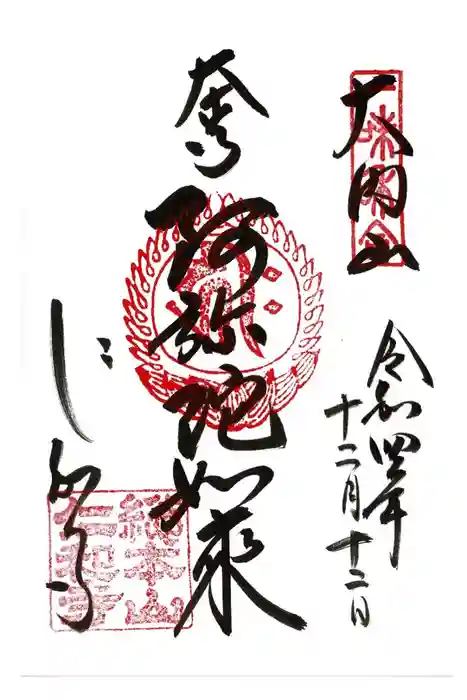 大内山
令和四年
十二月十二日
阿弥陀如来
仁和寺
総本山
仁和寺